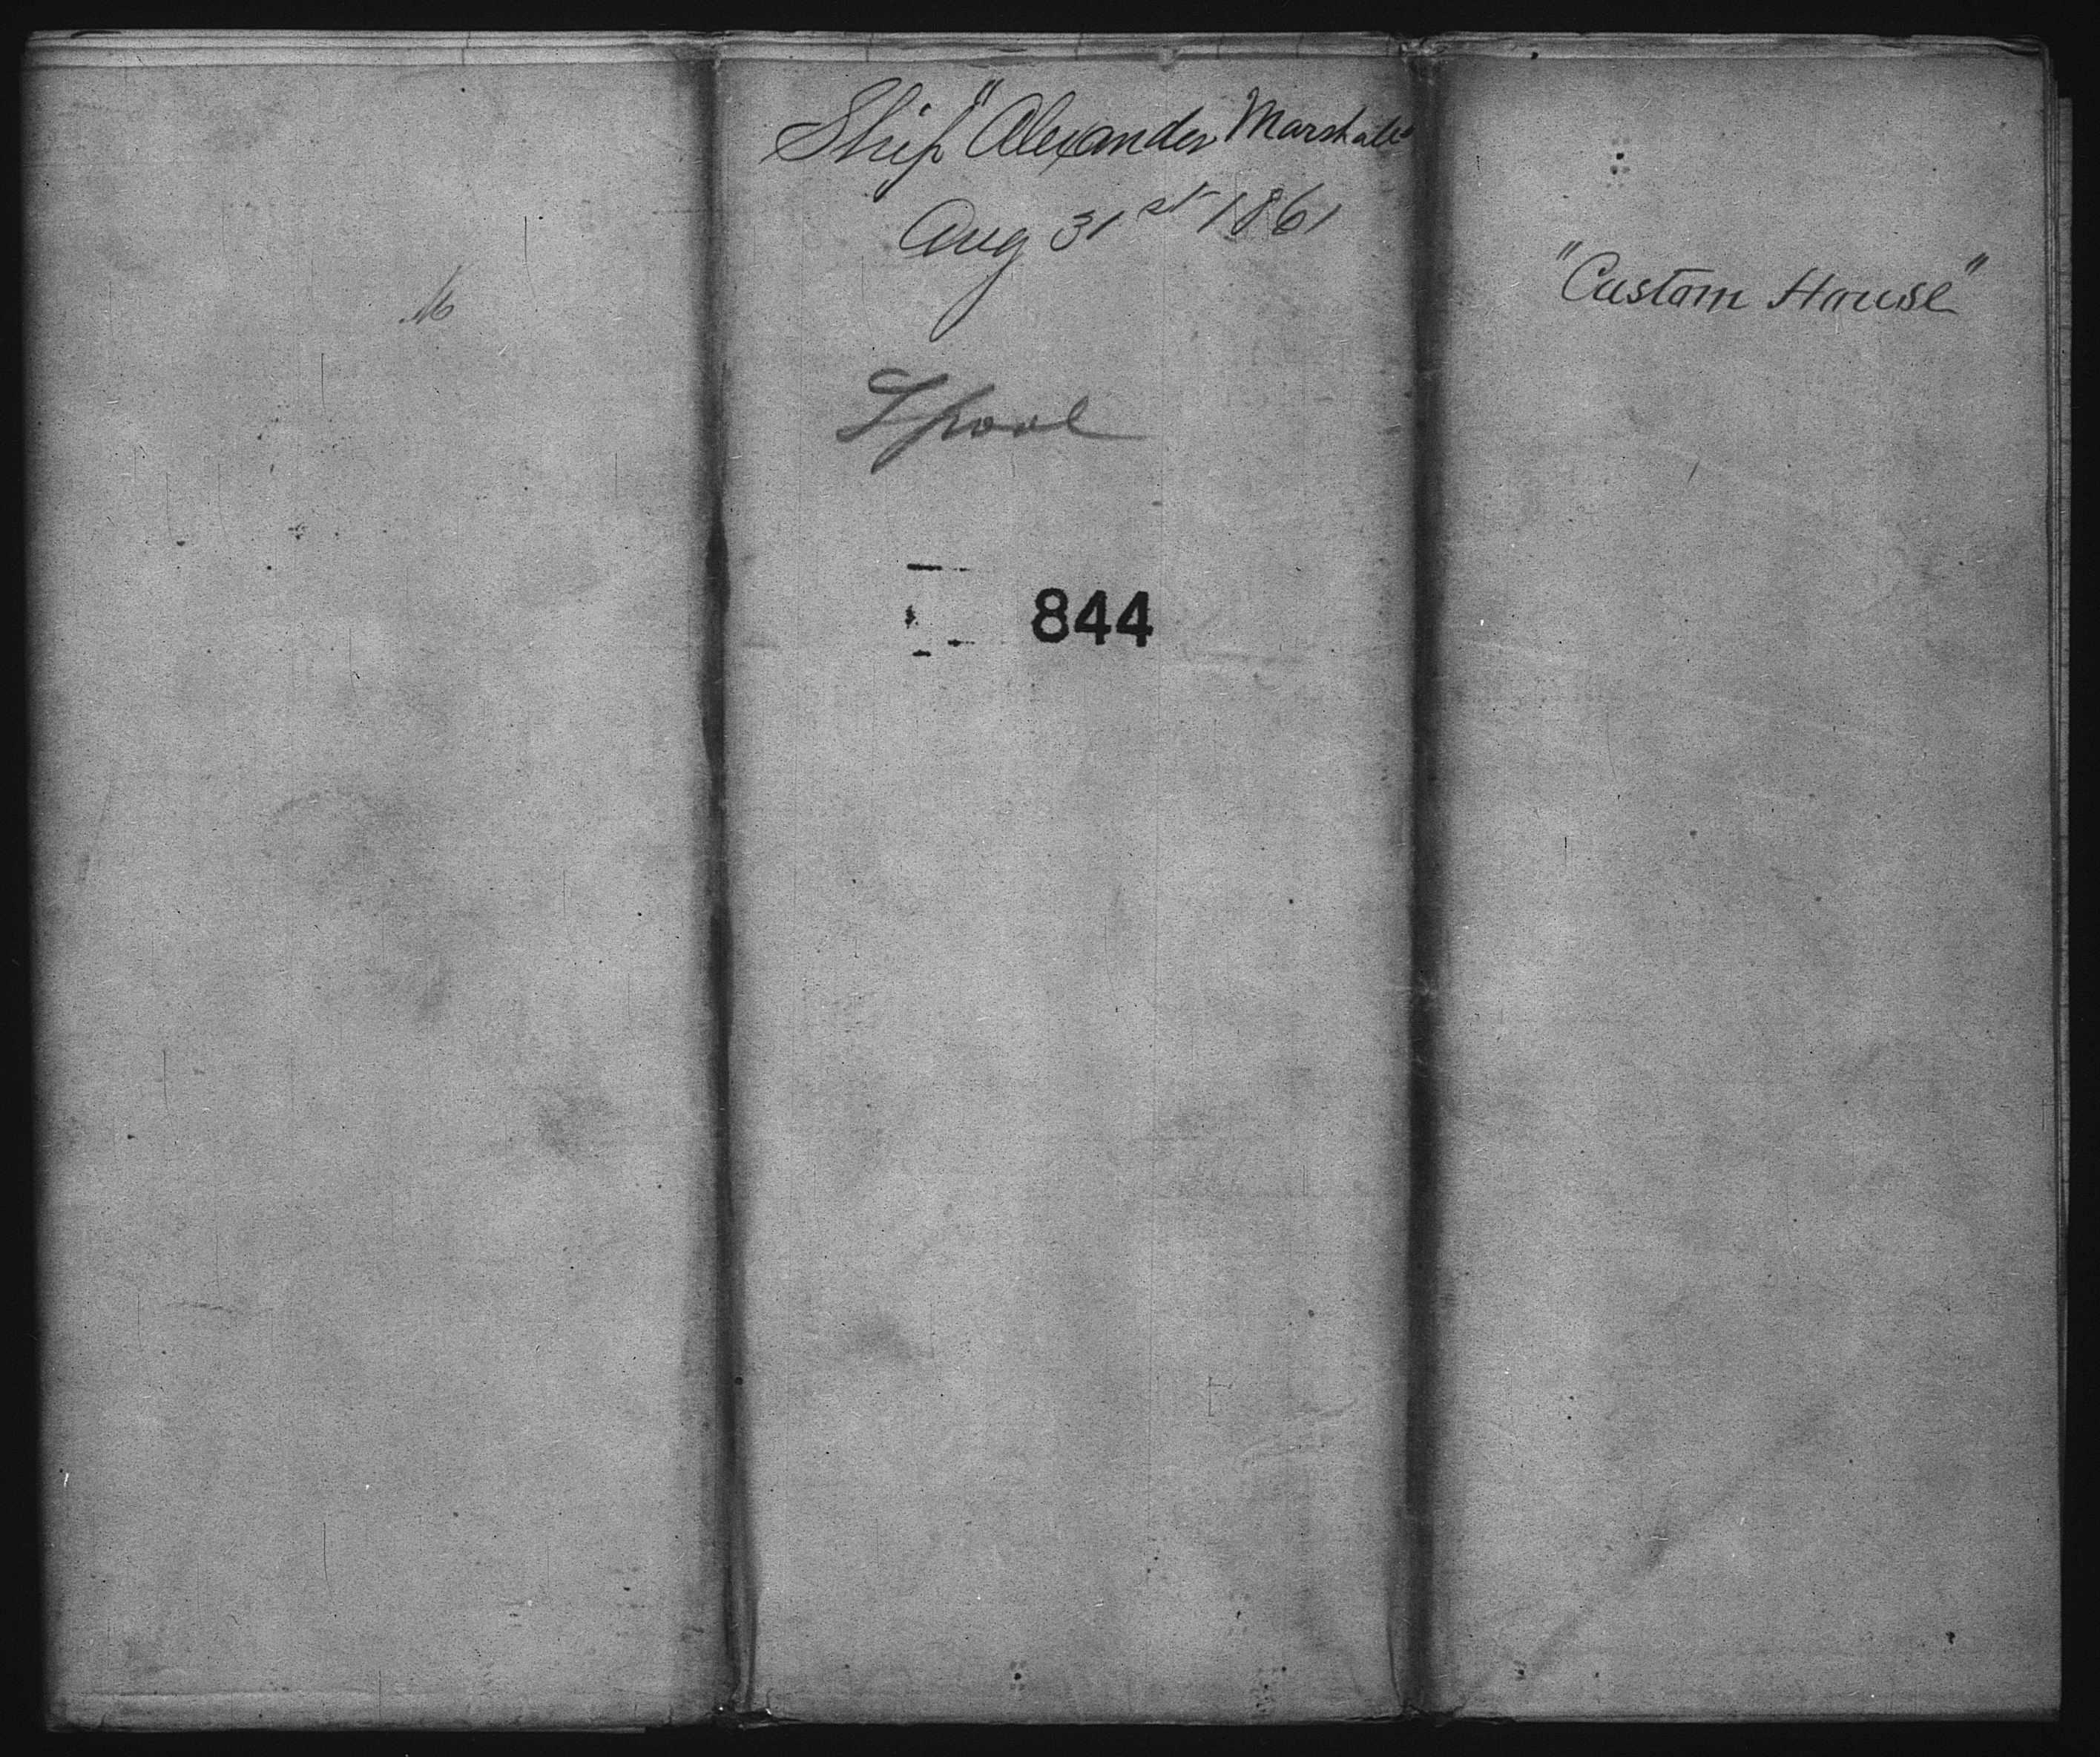 Ship "Alexander Marshall"
Aug 31st 1861
Lpool
844
"Custom House"